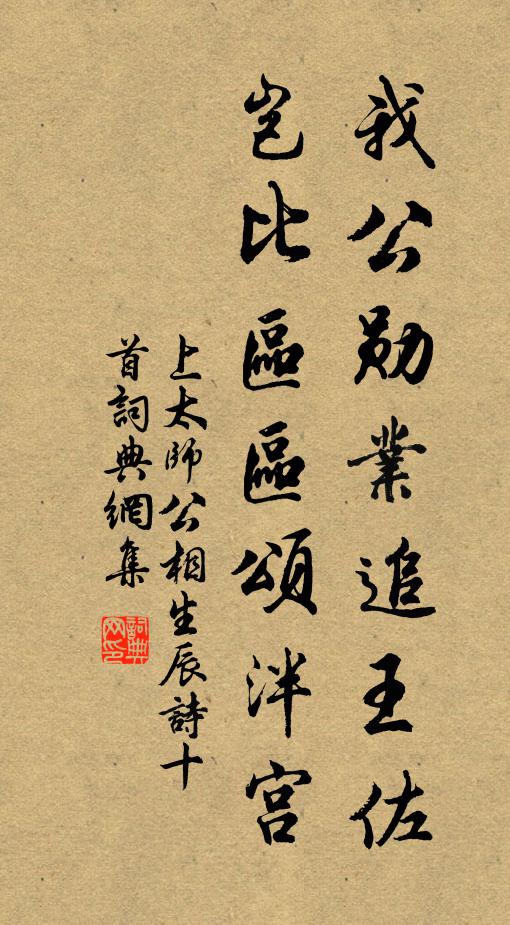 我公勛業追王佐
豈比區區頌泮宮
上太師公相生辰詩十
首詞典網集
詞典
网印